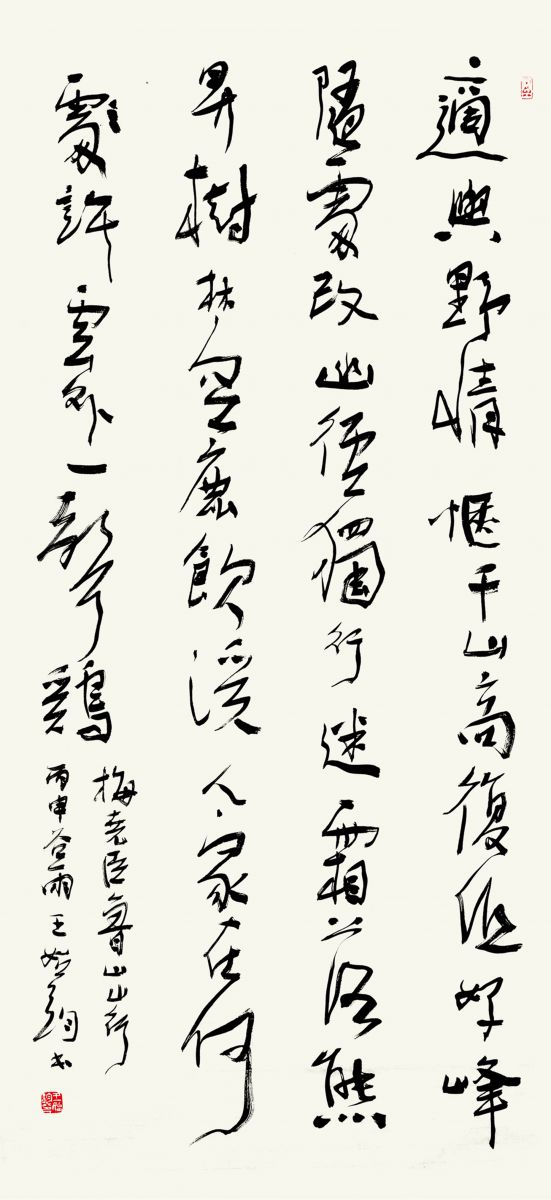 適與野情愜千山高復低好峰
隨處改幽徑獨行迷霜落熊
昇樹林空鹿飲溪人家在何
處許雲外一聲鷄
梅堯臣魯山山行
丙申谷雨王書